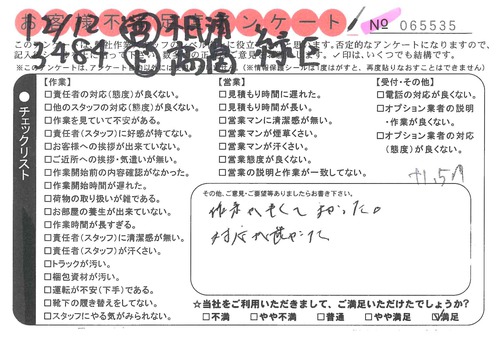 お客様不満足アンケート
№ 065535
12/12
2484
【作業】
□責任者の対応(態度)が良くない。
□他のスタッフの対応(態度)が良くない。
□作業を見ていて不安がある。
□責任者(スタッフ)に好感が持てない。
□お客様への挨拶が出来ていない。
□ご近所への挨拶・気遣いが無い。
□作業開始前の内容確認がなかった。
□作業開始時間が遅れた。
□荷物の取り扱いが雑である。
□お部屋の養生が出来ていない。
□作業時間が長すぎる。
□責任者(スタッフ)に清潔感が無い。
□責任者(スタッフ)が汗くさい。
□トラックが汚い。
□梱包資材が汚い。
□運転が不安(下手)である。
□靴下の履き替えをしてない。
□スタッフにやる気がみられない。
【営業】
□見積もり時間に遅れた。
□見積もり時間が長い。
□営業マンに清潔感が無い。
□営業マンが煙草くさい。
□営業マンが汗くさい。
□営業態度が良くない。
□営業の説明と作業が一致してない。
【受付・その他】
□電話の対応が良くない。
□オプション業者の説明
・作業が良くない。
□オプション業者の対応
(態度)が良くない。
●チェックリスト
その他、ご意見・ご要望等ありましたらお書き下さい。
作業が早くてよかった。
対応が良かった
☆当社をご利用いただきまして、ご満足いただけたでしょうか?
□不満 □やや不満 □普通 □やや満足 ☑満足